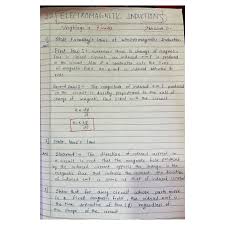 ELECTROMAGNETIC INDUCTIONS
Weightage =
State Faraday's laws of electromagnetic induction
First law : whenever there is change of magnetic
flux in closed circuit an induced emf is produced
in the circuit. Also if a conductor cuts the lines
of magnetic field the e.m.f is induced between its
ends.
Second law : The magnitude of induced e.m.f produced
in the circuit is directly proportional to the rate of
change of magnetic flux linked with the circuit
State lenz's law
Statement : The direction of induced current in
a circuit is such that the magnetic field produced
by the induced current opposes the change in the
magnetic flux that induces the current. The direction
of induced emf is same as that of induced current.
Show that for any circuit whose parts move
in a fixed magnetic field, the induced emf is
the time derivative of flux (ϕ) regardless of
the shape of the circuit